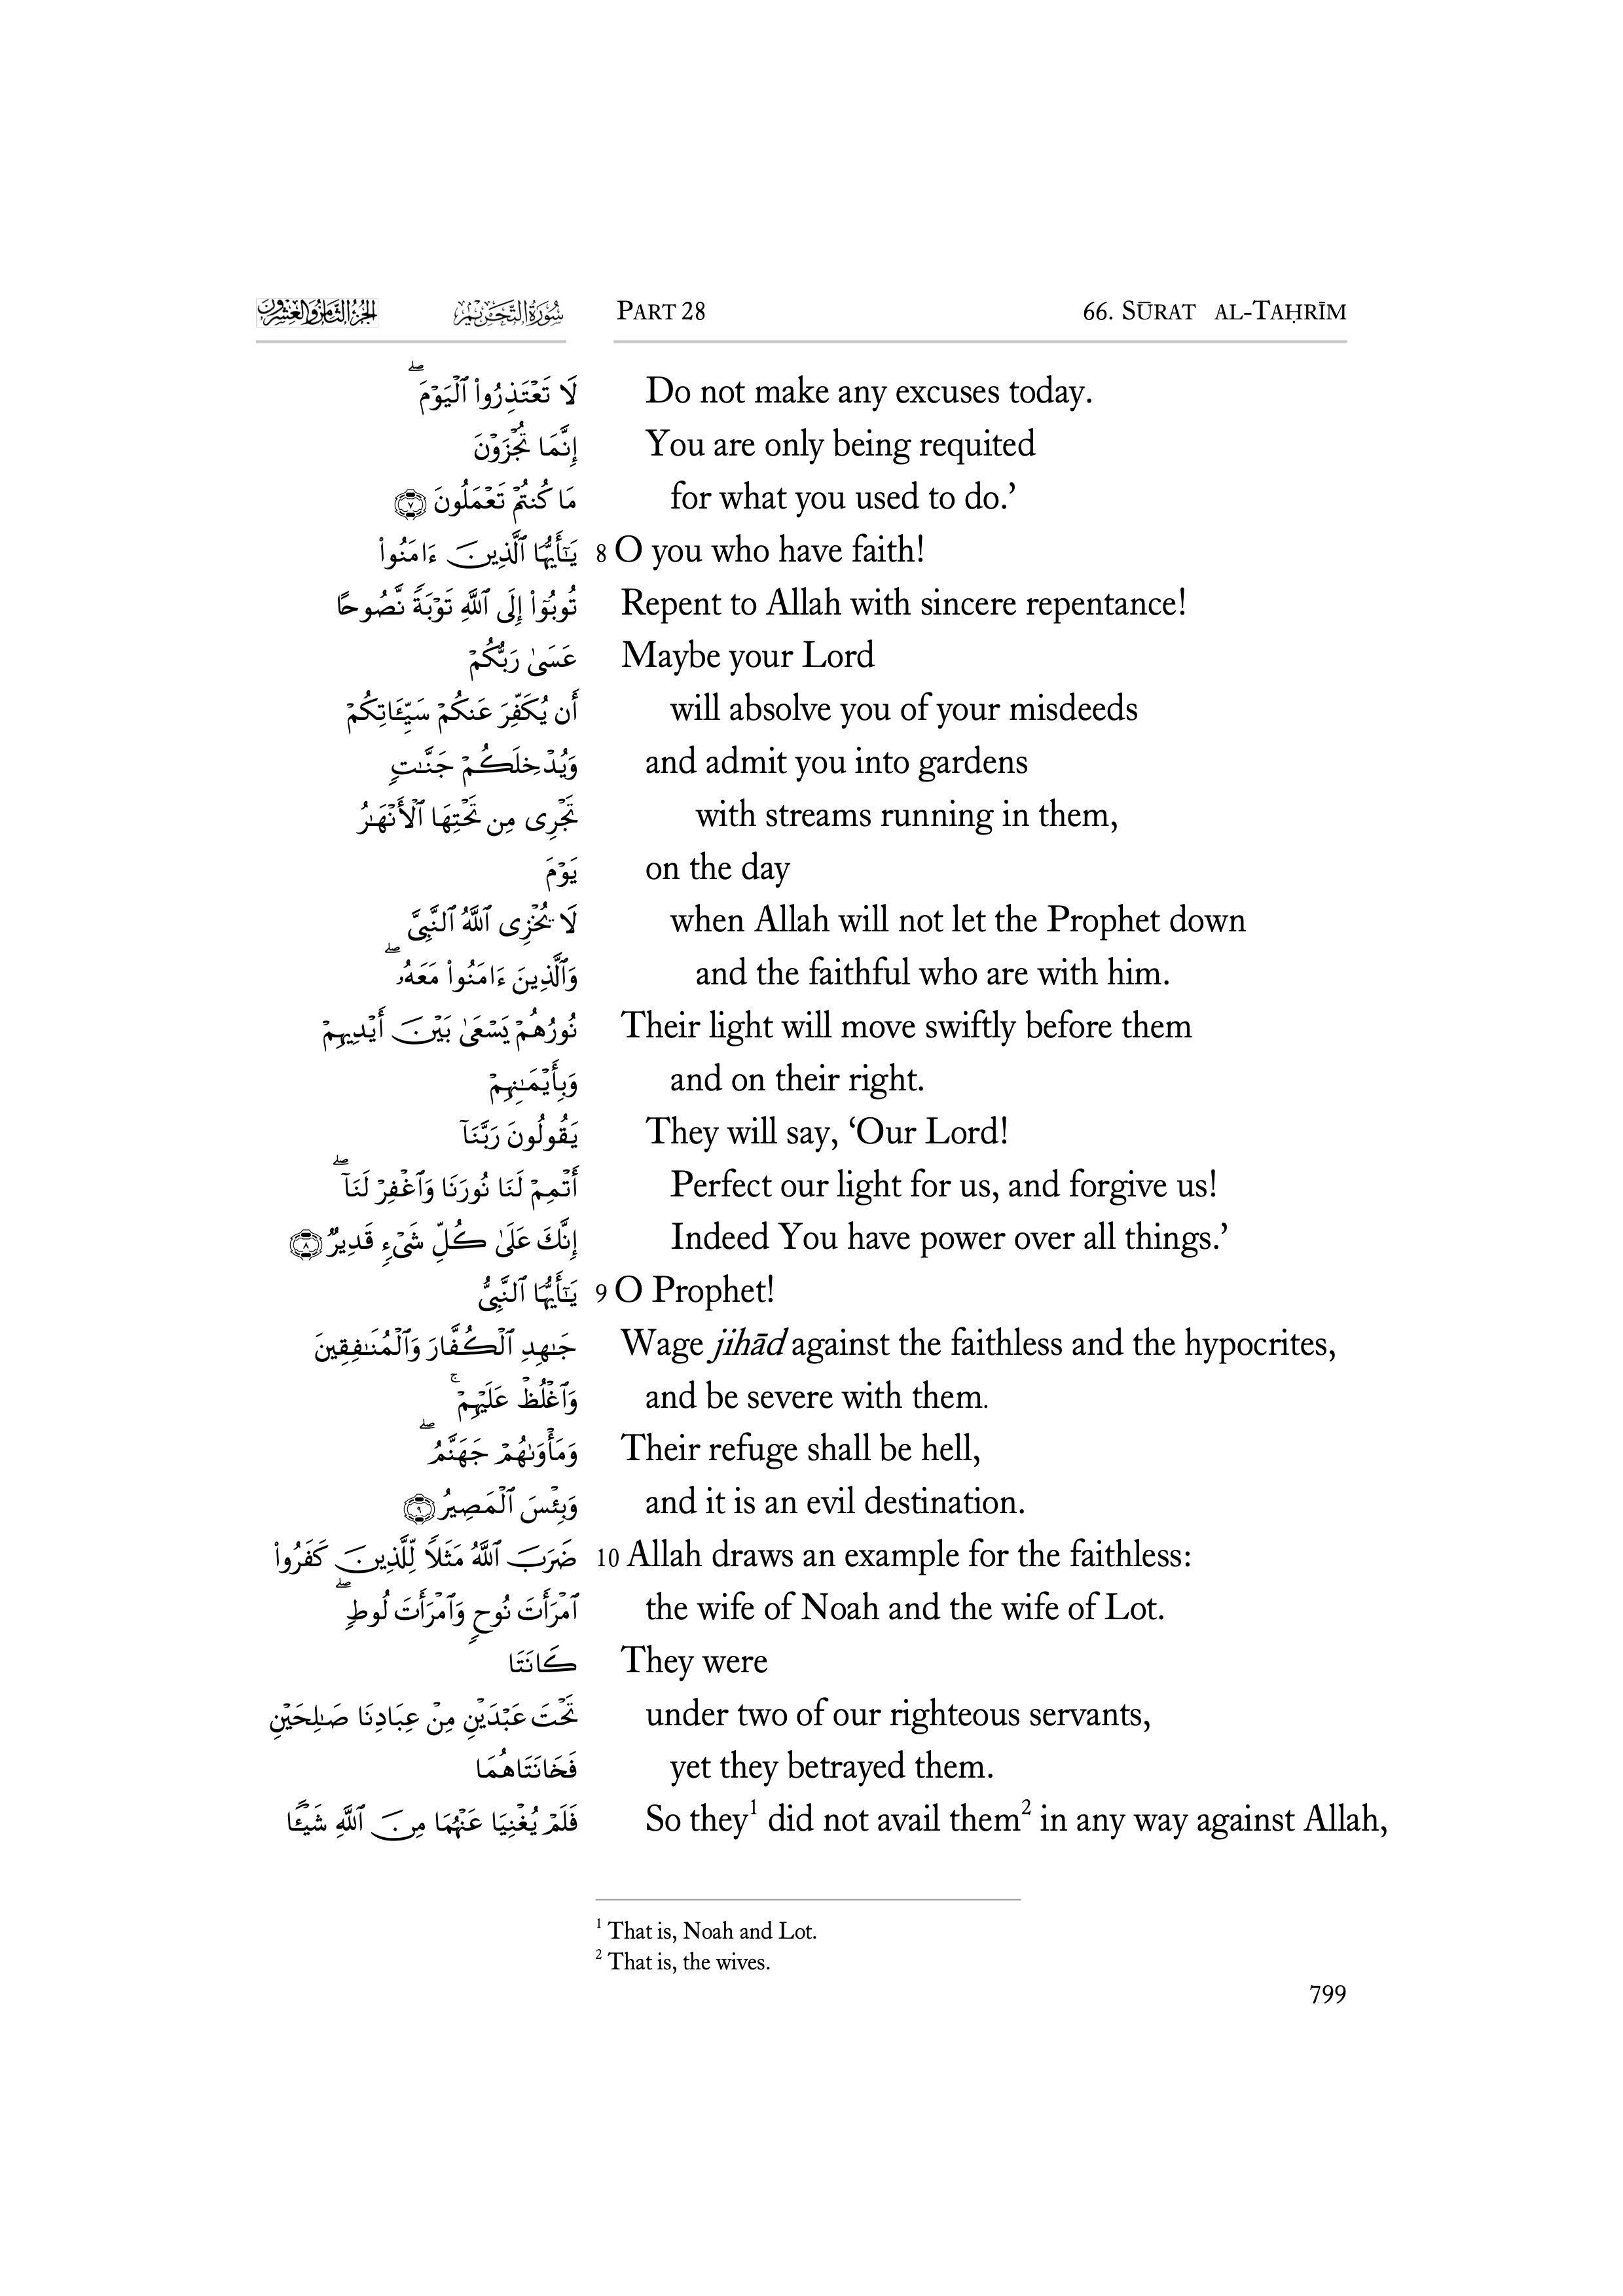 الجزء الثامن والعشرون سورة التحريم PART 28 66. SŪRAT AL-TAḤRĪM
لَا تَعْتَذِرُوا۟ ٱلْيَوْمَ ۖ Do not make any excuses today.
إِنَّمَا تُجْزَوْنَ You are only being requited
مَا كُنتُمْ تَعْمَلُونَ ٧ for what you used to do.’
يَـٰٓأَيُّهَا ٱلَّذِينَ ءَامَنُوا۟ 8 O you who have faith!
تُوبُوٓا۟ إِلَى ٱللَّهِ تَوْبَةً نَّصُوحًا Repent to Allah with sincere repentance!
عَسَىٰ رَبُّكُمْ Maybe your Lord
أَن يُكَفِّرَ عَنكُمْ سَيِّـَٔاتِكُمْ will absolve you of your misdeeds
وَيُدْخِلَكُمْ جَنَّـٰتٍ and admit you into gardens
تَجْرِى مِن تَحْتِهَا ٱلْأَنْهَـٰرُ with streams running in them,
يَوْمَ on the day
لَا يُخْزِى ٱللَّهُ ٱلنَّبِىَّ when Allah will not let the Prophet down
وَٱلَّذِينَ ءَامَنُوا۟ مَعَهُۥ ۖ and the faithful who are with him.
نُورُهُمْ يَسْعَىٰ بَيْنَ أَيْدِيهِمْ Their light will move swiftly before them
وَبِأَيْمَـٰنِهِمْ and on their right.
يَقُولُونَ رَبَّنَآ They will say, ‘Our Lord!
أَتْمِمْ لَنَا نُورَنَا وَٱغْفِرْ لَنَآ ۖ Perfect our light for us, and forgive us!
إِنَّكَ عَلَىٰ كُلِّ شَىْءٍ قَدِيرٌ ٨ Indeed You have power over all things.’
يَـٰٓأَيُّهَا ٱلنَّبِىُّ 9 O Prophet!
جَـٰهِدِ ٱلْكُفَّارَ وَٱلْمُنَـٰفِقِينَ Wage jihād against the faithless and the hypocrites,
وَٱغْلُظْ عَلَيْهِمْ ۚ and be severe with them.
وَمَأْوَىٰهُمْ جَهَنَّمُ ۖ Their refuge shall be hell,
وَبِئْسَ ٱلْمَصِيرُ ٩ and it is an evil destination.
ضَرَبَ ٱللَّهُ مَثَلًا لِّلَّذِينَ كَفَرُوا۟ 10 Allah draws an example for the faithless:
ٱمْرَأَتَ نُوحٍ وَٱمْرَأَتَ لُوطٍ ۖ the wife of Noah and the wife of Lot.
كَانَتَا They were
تَحْتَ عَبْدَيْنِ مِنْ عِبَادِنَا صَـٰلِحَيْنِ under two of our righteous servants,
فَخَانَتَاهُمَا yet they betrayed them.
فَلَمْ يُغْنِيَا عَنْهُمَا مِنَ ٱللَّهِ شَيْـًٔا So they¹ did not avail them² in any way against Allah,
¹ That is, Noah and Lot.
² That is, the wives.
799